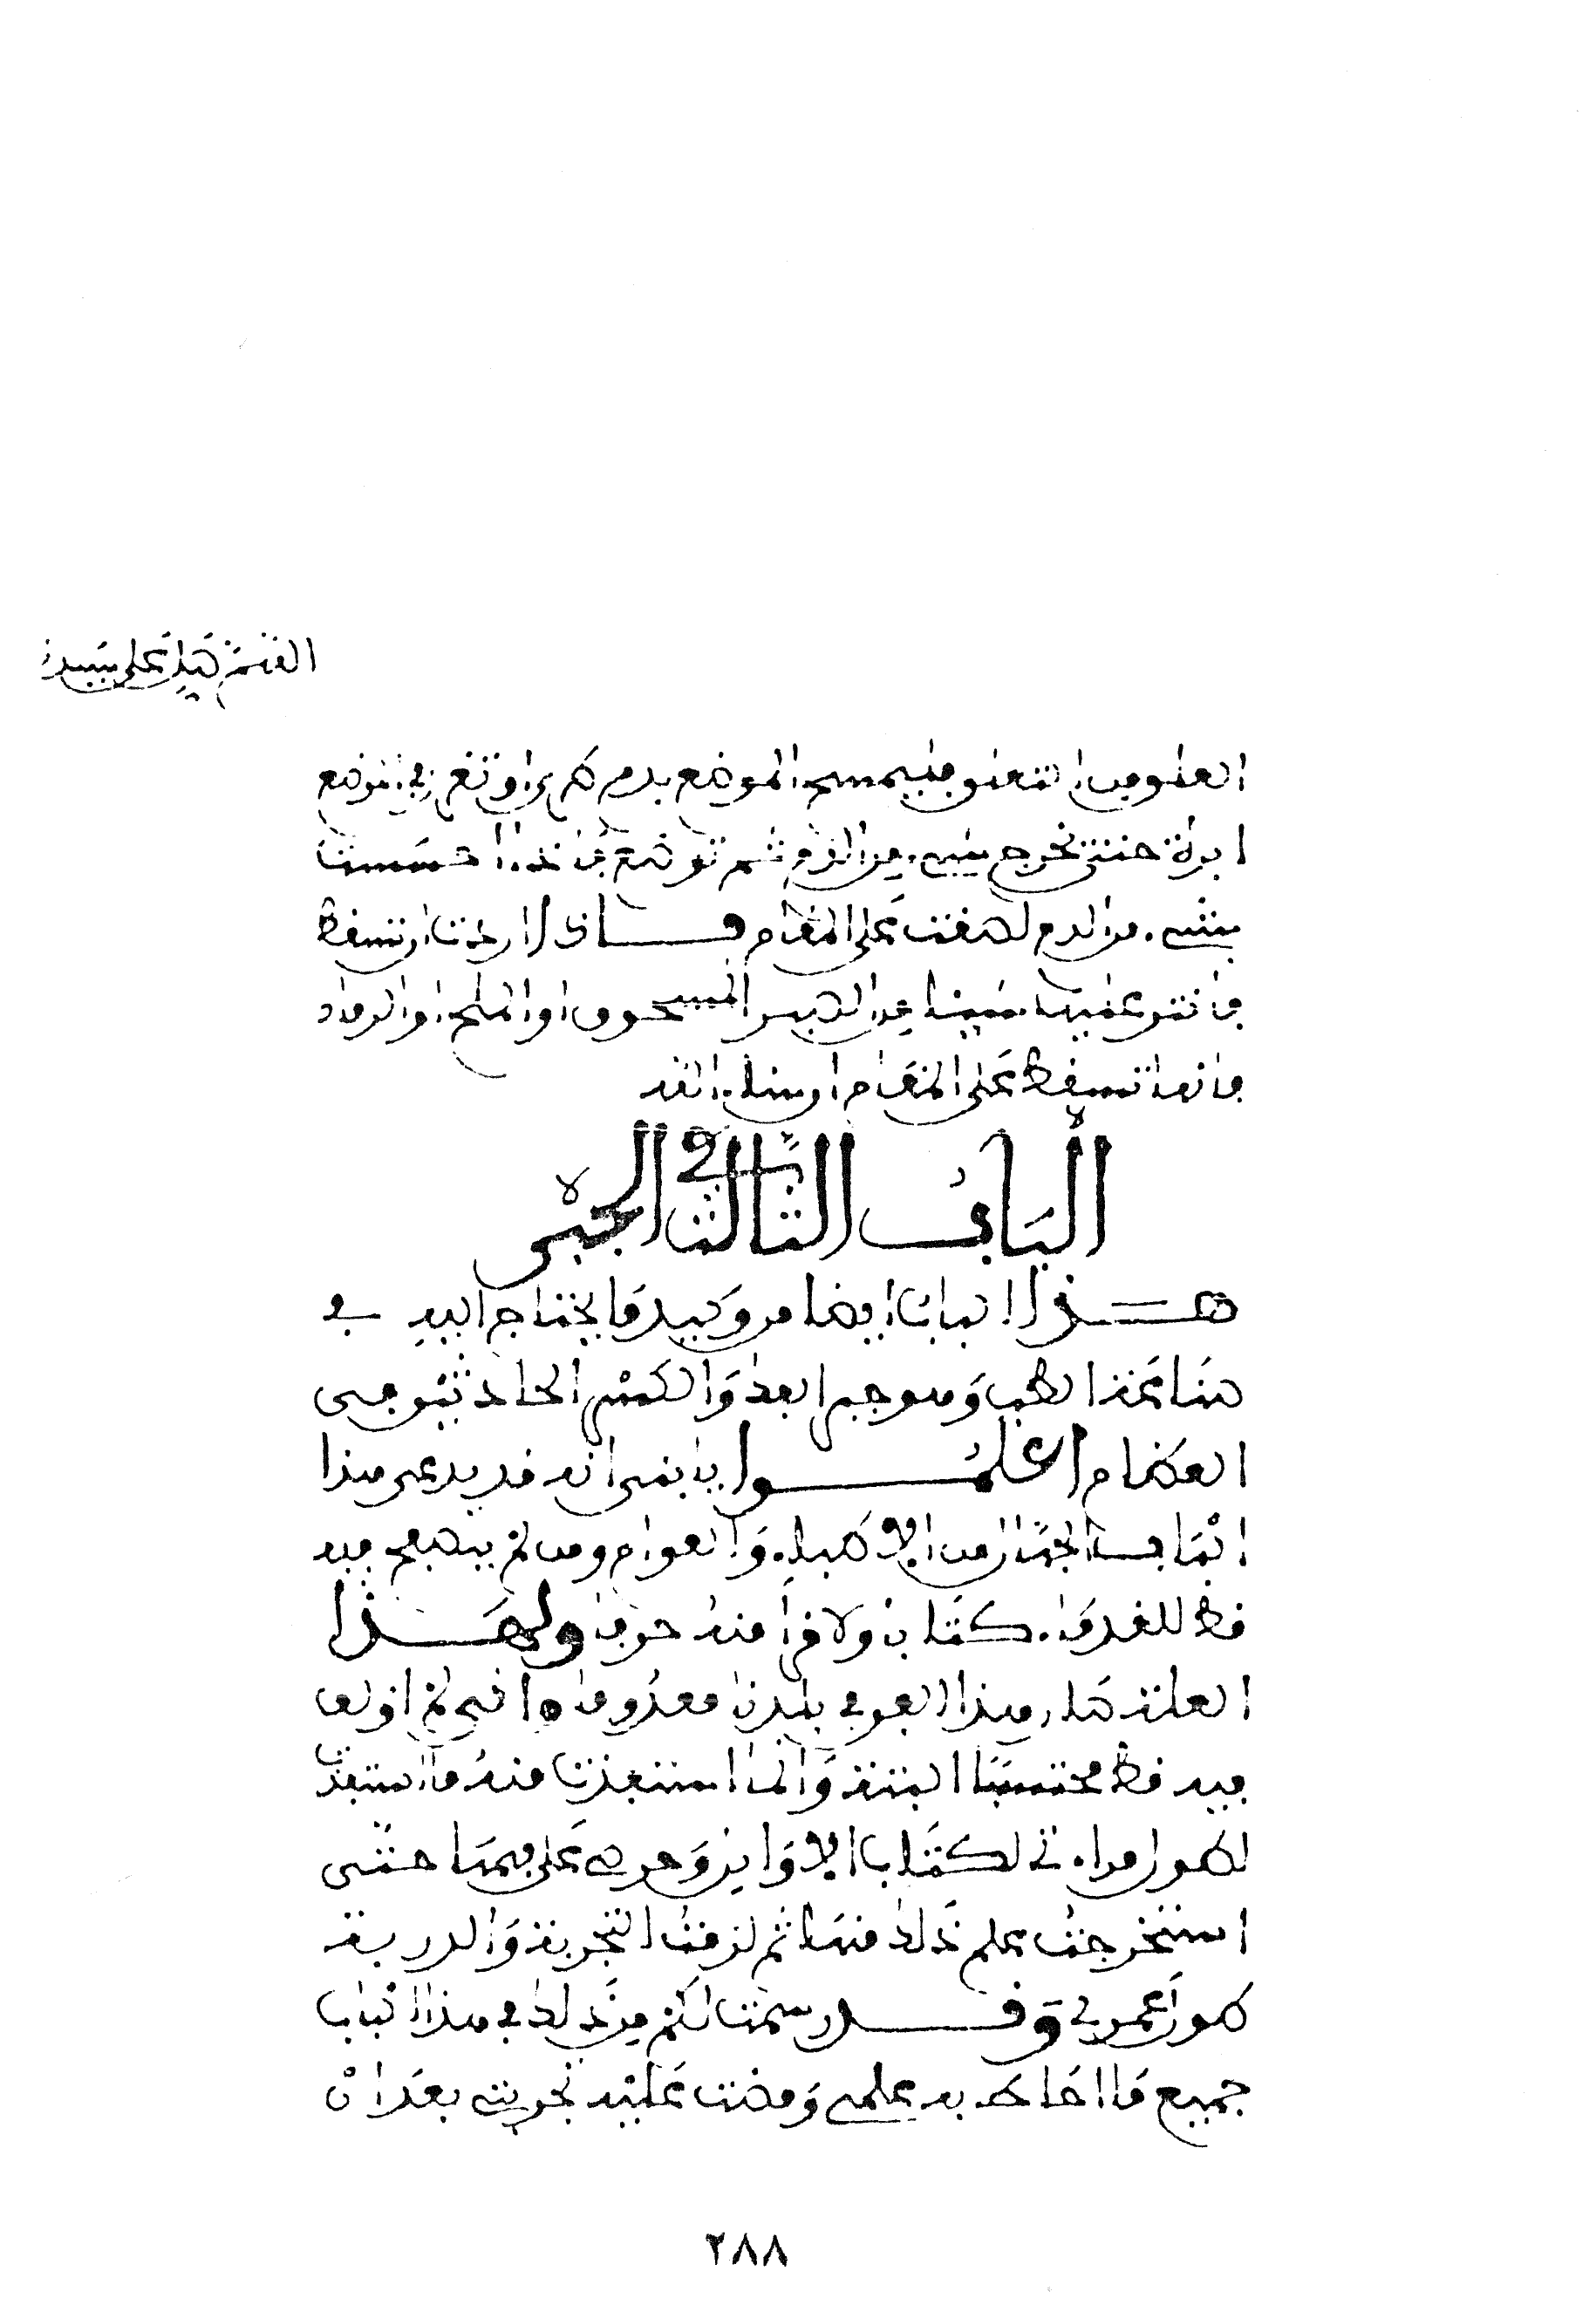 العلوق ان تتعلق فليمسح الموضع بدم طري او تغرز في الموضع
ابرة حتى يخرج شيء من الدم ثم توضع فانها اذا احست
بشيء من الدم لصقت على المقام فاذا اردت ان تسقط
فانثر عليها شيئا من الصبر المسحوق او الملح او الرماد
فانها تسقط على المقام ان شاء الله
الباب الثالث في الجبر
هذا الباب ايضا من وكيد ما يحتاج اليه في
صناعة الطب وهو جبر الفك والكسر الحادث في
العظام اعلموا يا بني انه قد يدعي هذا
الباب الجهال من الاطباء والعوام ومن لم يتصفح فيه
قط للقدماء كتابا ولا قرا منه حرفا ولهذا
العلة صار هذا الفن في بلدنا معدوما واني لم الق
فيه قط محسنا البتة وانما استفدت منه ما استفدت
لطول قراءتي لكتب الاوايل وحرصي على فهمها حتى
استخرجت علم ذلك منها ثم لزمت التجربة والدربة
طول عمري وقد رسمت لكم من ذلك في هذا الباب
جميع ما احاط به علمي ومضت عليه تجربتي بعد ان
٢٨٨